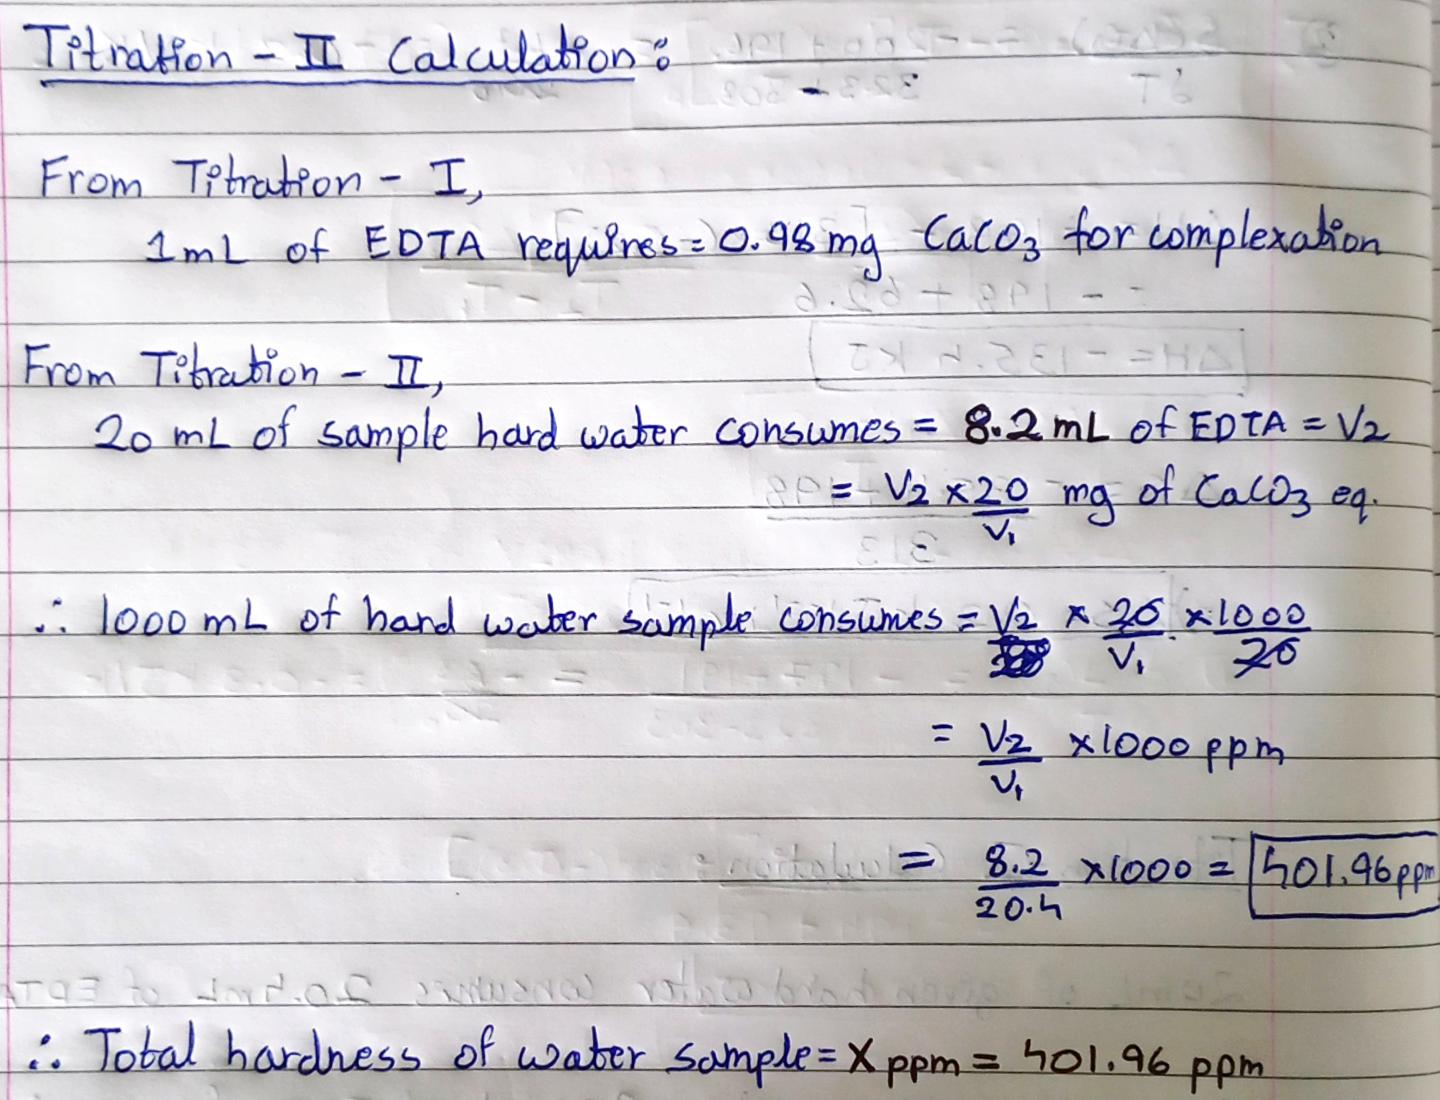 Titration - II Calculation :
From Titration - I,
1mL of EDTA requires = 0.98 mg CaCO3 for complexation
From Titration - II,
20 mL of sample hard water consumes = 8.2 mL of EDTA = V2
= V2 × 20/V1 mg of CaCO3 eq.
∴ 1000 mL of hard water sample consumes = V2 × 20/V1 × 1000/20
= V2/V1 × 1000 ppm
= 8.2/20.4 × 1000 = 401.96 ppm
∴ Total hardness of water sample = X ppm = 401.96 ppm